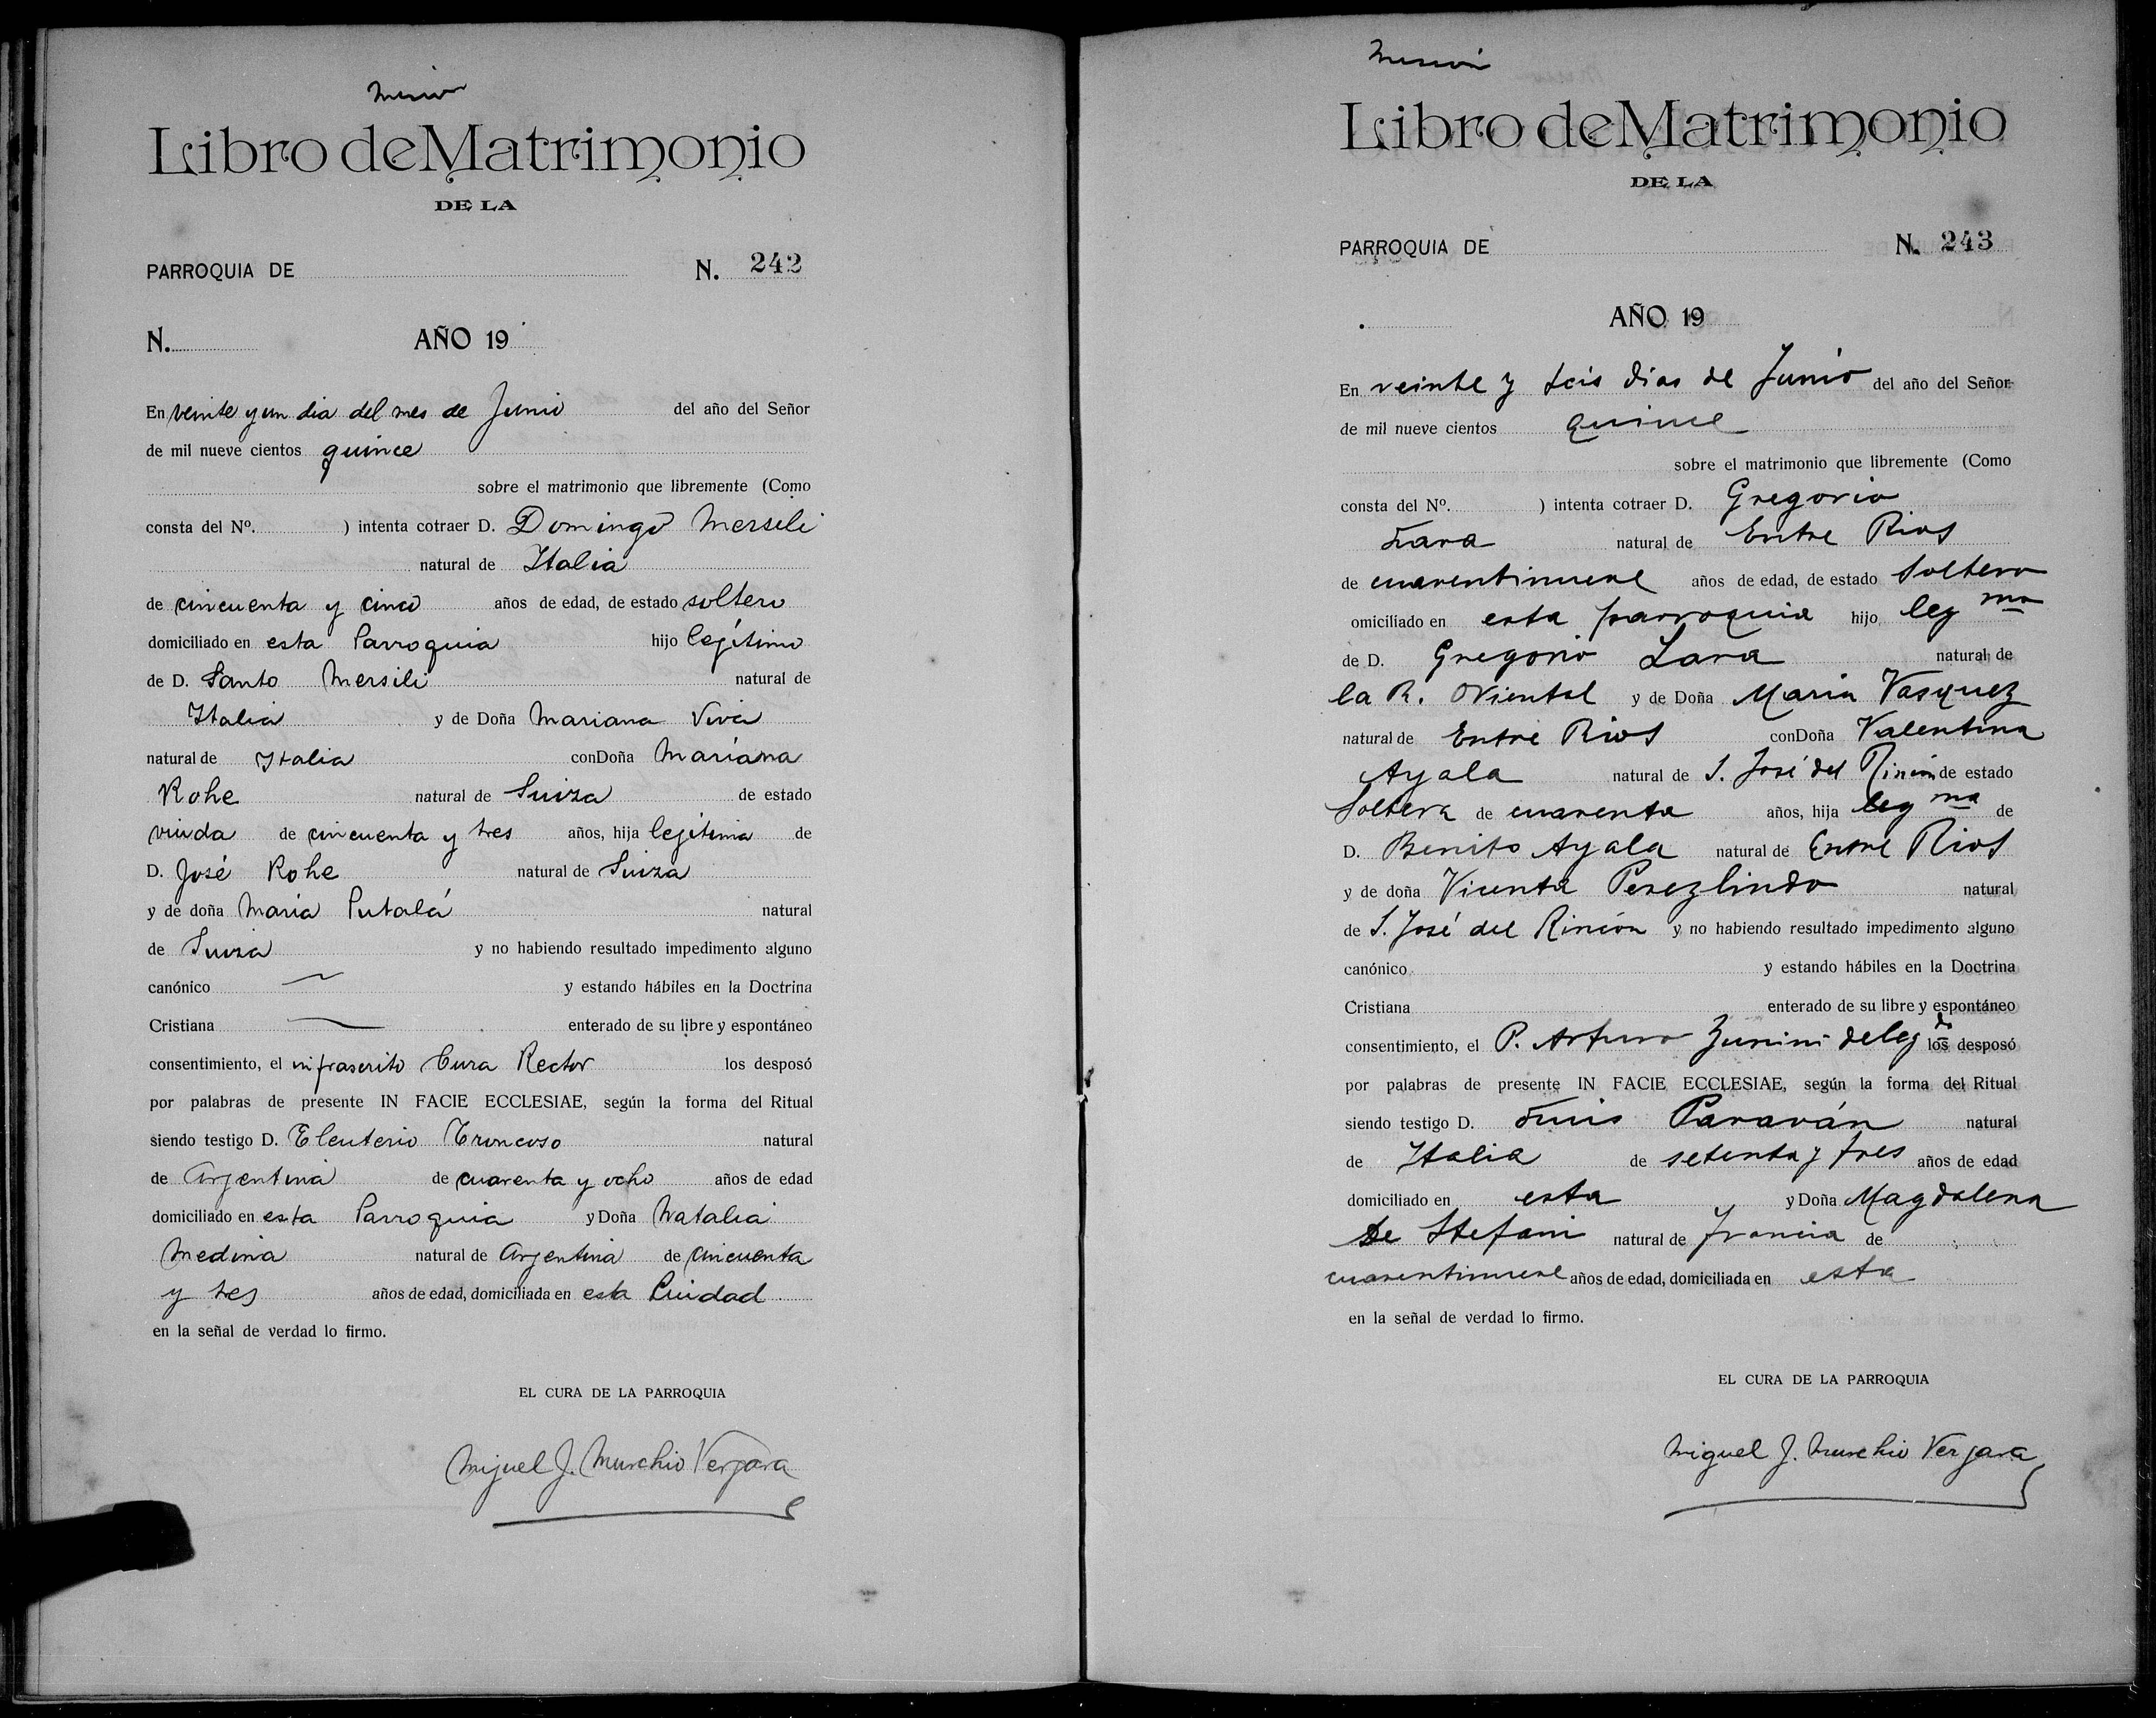 Misión
Libro de Matrimonio
DE LA
PARROQUIA DE N. 242
N. AÑO 19
En veinte y un dia del mes de Junio del año del Señor
de mil nueve cientos quince
sobre el matrimonio que libremente (Como
consta del Nº. ) intenta cotraer D. Domingo Mersili
natural de Italia
de cincuenta y cinco años de edad, de estado soltero
domiciliado en esta Parroquia hijo legítimo
de D. Santo Mersili natural de
Italia y de Doña Mariana Viva
natural de Italia conDoña Mariana
Rohe natural de Suiza de estado
viuda de cincuenta y tres años, hija legítima de
D. José Rohe natural de Suiza
y de doña Maria Putalá natural
de Suiza y no habiendo resultado impedimento alguno
canónico y estando hábiles en la Doctrina
Cristiana enterado de su libre y espontáneo
consentimiento, el infrascrito Cura Rector los desposó
por palabras de presente IN FACIE ECCLESIAE, según la forma del Ritual
siendo testigo D. Eleuterio Troncoso natural
de Argentina de cuarenta y ocho años de edad
domiciliado en esta Parroquia y Doña Natalia
Medina natural de Argentina de cincuenta
y tres años de edad, domiciliada en esta Ciudad
en la señal de verdad lo firmo.
EL CURA DE LA PARROQUIA
Miguel J. Murchio Vergara
Misión
Libro de Matrimonio
DE LA
PARROQUIA DE N. 243
AÑO 19
En veinte y seis dias de Junio del año del Señor
de mil nueve cientos quince
sobre el matrimonio que libremente (Como
consta del Nº. ) intenta cotraer D. Gregorio
Lara natural de Entre Rios
de cuarentinueve años de edad, de estado Soltero
omiciliado en esta parroquia hijo leg mo
de D. Gregorio Lara natural de
la R. Oriental y de Doña Maria Vasquez
natural de Entre Rios conDoña Valentina
Ayala natural de S. José del Rincón de estado
Soltera de cuarenta años, hija leg ma de
D. Benito Ayala natural de Entre Rios
y de doña Vicenta Perezlindo natural
de S. José del Rincón y no habiendo resultado impedimento alguno
canónico y estando hábiles en la Doctrina
Cristiana enterado de su libre y espontáneo
consentimiento, el P. Arturo Zunini deleg do los desposó
por palabras de presente IN FACIE ECCLESIAE, según la forma del Ritual
siendo testigo D. Luis Paraván natural
de Italia de setenta y tres años de edad
domiciliado en esta y Doña Magdalena
de Stefani natural de Francia de
cuarentinueve años de edad, domiciliada en esta
en la señal de verdad lo firmo.
EL CURA DE LA PARROQUIA
Miguel J. Murchio Vergara